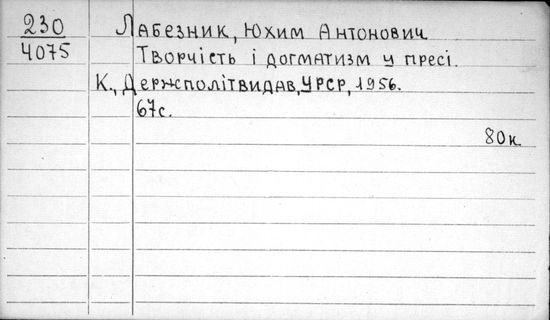 230 Лабезник, Юхим Антонович
4075 Творчість і догматизм у пресі.
К., Держполітвидав, УРСР, 1956.
67с.
80к.